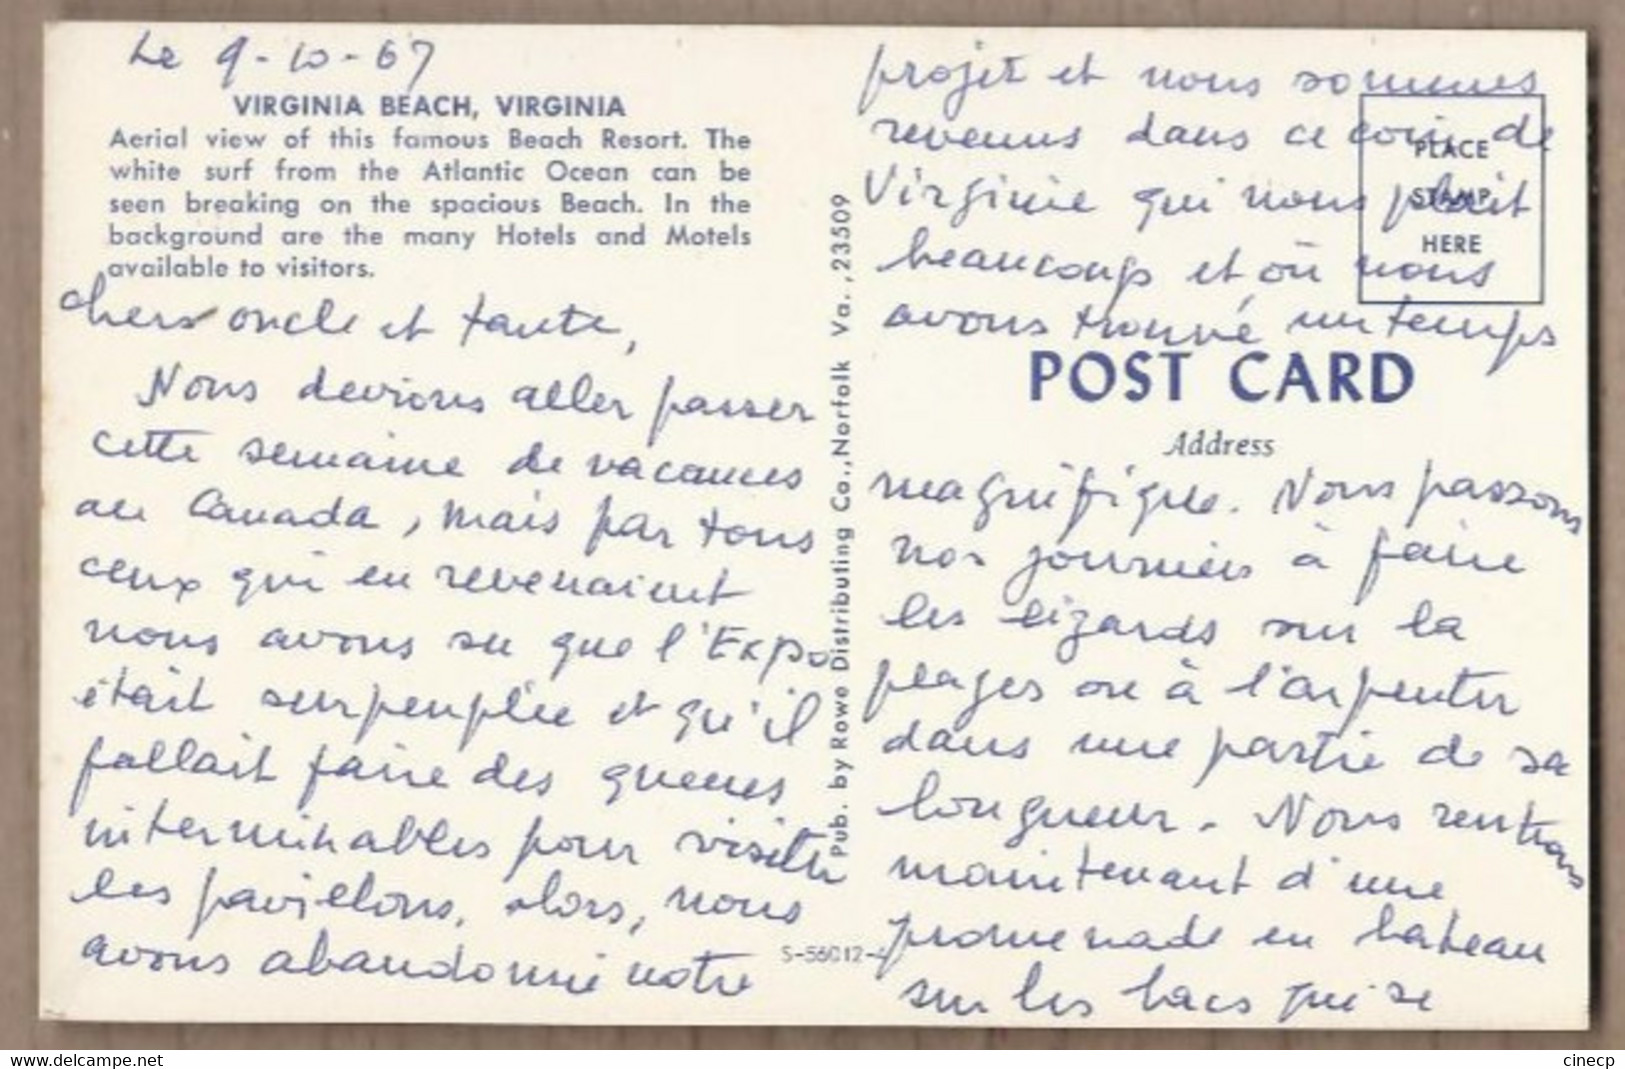 Le 9-10-67
VIRGINIA BEACH, VIRGINIA
Aerial view of this famous Beach Resort. The
white surf from the Atlantic Ocean can be
seen breaking on the spacious Beach. In the
background are the many Hotels and Motels
available to visitors.
chers oncle et tante,
Nous devions aller passer
cette semaine de vacances
au Canada, mais par tous
ceux qui en revenaient
nous avons su que l'Expo
était surpeuplée et qu'il
fallait faire des queues
interminables pour visiter
les pavillons, alors, nous
avons abandonné notre
Pub. by Rowe Distributing Co., Norfolk Va., 23509
S-56012-4
projet et nous sommes
revenus dans ce coin de
Virginie qui nous plait
beaucoup et où nous
avons trouvé un temps
PLACE
STAMP
HERE
POST CARD
Address
magnifique. Nous passons
nos journées à faire
les lézards sur la
plages ou à l'arpenter
dans une partie de sa
longueur. Nous rentrons
maintenant d'une
promenade en bateau
sur les lacs qui se
cinecp
https://www.delcampe.net